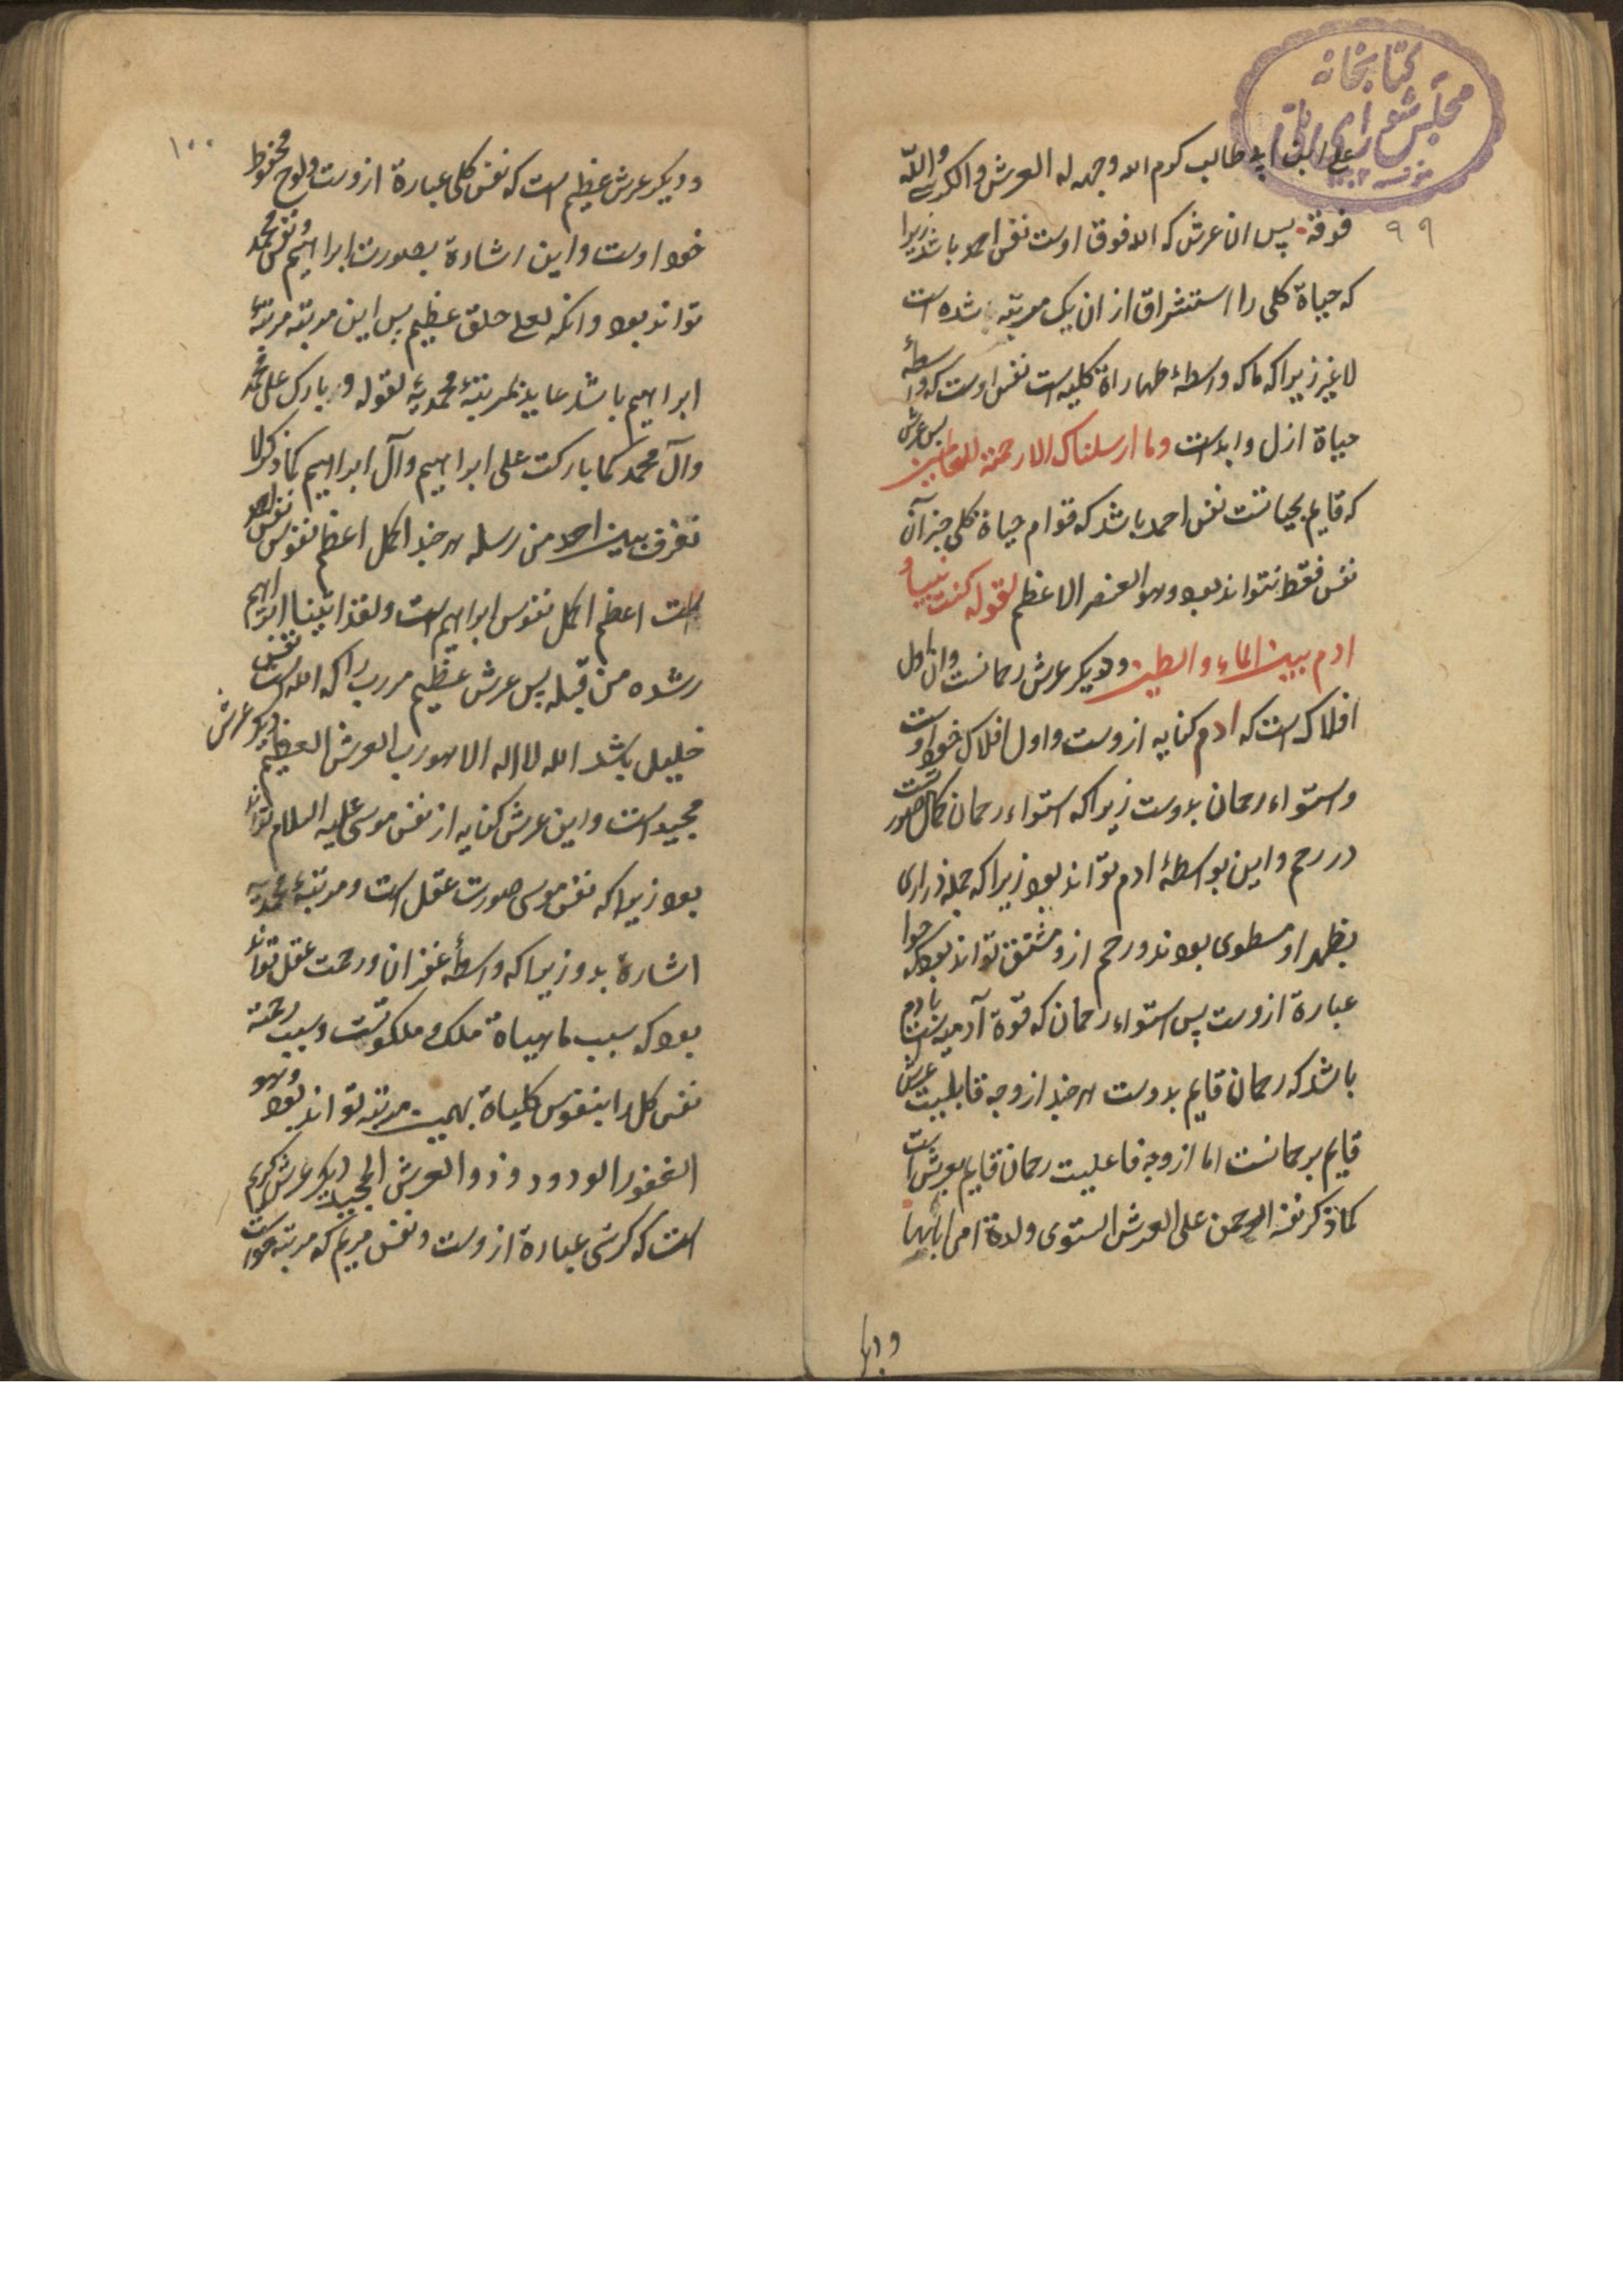 کتابخانه
مجلس شورای ملی
علی ابن ابی طالب کرم الله وجهه له العرش والکرسی والله
۹۹
فوقه پس ان عرش که الله فوق اوست نفس احمد باشد زیرا
که حیاة کلی را استشراق از ان یک مرتبه شده است
لا غیر زیرا که ماکه واسطهٔ طهاراة کلیه است نفس اوست که واسطهٔ
حیاة ازل وابد است وما ارسلناک الا رحمة للعالمین پس عرش
که قایم بحیاتست نفس احمد باشد که قوام حیاة کلی جز آن
نفس فقط نتواند بود وهو العنصر الاعظم لقوله کنت نبیا و
ادم بین الماء والطین ودیکر عرش رحمانست وان اول
افلاک است که ادم کنایه ازوست واول افلاک خود اوست
واستواء رحمان بدوست زیرا که استواء رحمان کمال صورتست
در رحم واین بواسطهٔ ادم تواند بود زیرا که جمله ذراری
بظهر او مطوی بودند ورحم ازو مشتق تواند بود که حوا
عبارة ازوست پس استواء رحمان که قوة آدمیه است بادم
باشد که رحمان قایم بدوست هر چند از وجه قابلیت عرش
قایم برحمانست اما از وجه فاعلیت رحمان قایم بعرش است
کما ذکر نفسه الرحمن علی العرش استوی ولدة امی اباها
وديکر
۱۰۰
ودیکر عرش عظیم است که نفس کلی عبارة ازوست ولوح محفوظ
خود اوست واین اشارة بصورت ابراهیم ونفس محمد
تواند بود وانک لعلی خلق عظیم پس این مرتبه مرتبهٔ
ابراهیم باشد عاید بمرتبهٔ محمدیه لقوله وبارک علی محمد
وآل محمد کما بارکت علی ابراهیم وآل ابراهیم کما ذکر لا
نفرق بین احد من رسله هر چند اکمل اعظم نفوس نفس احمد
است اعظم اکمل نفوس ابراهیم است ولقد اتینا ابراهیم
رشده من قبل پس عرش عظیم مر رب را که الله است نفس
خلیل باشد الله لا اله الا هو رب العرش العظیم دیکر عرش
مجید است واین عرش کنایه از نفس موسی علیه السلام تواند
بود زیرا که نفس موسی صورت عقل است ومرتبهٔ محمدیه
اشارة بدو زیرا که واسطهٔ غفران ورحمت عقل تواند
بود که سبب ماهیاة ملک وملکوتست وسبب رحمته
نفس کل را بنفوس کلیاة بهمین مرتبه تواند بود وهو
الغفور الودود ذو العرش المجید دیکر عرش کریم
است که کرسی عبارة ازوست ونفس مریم که مرتبه حواست